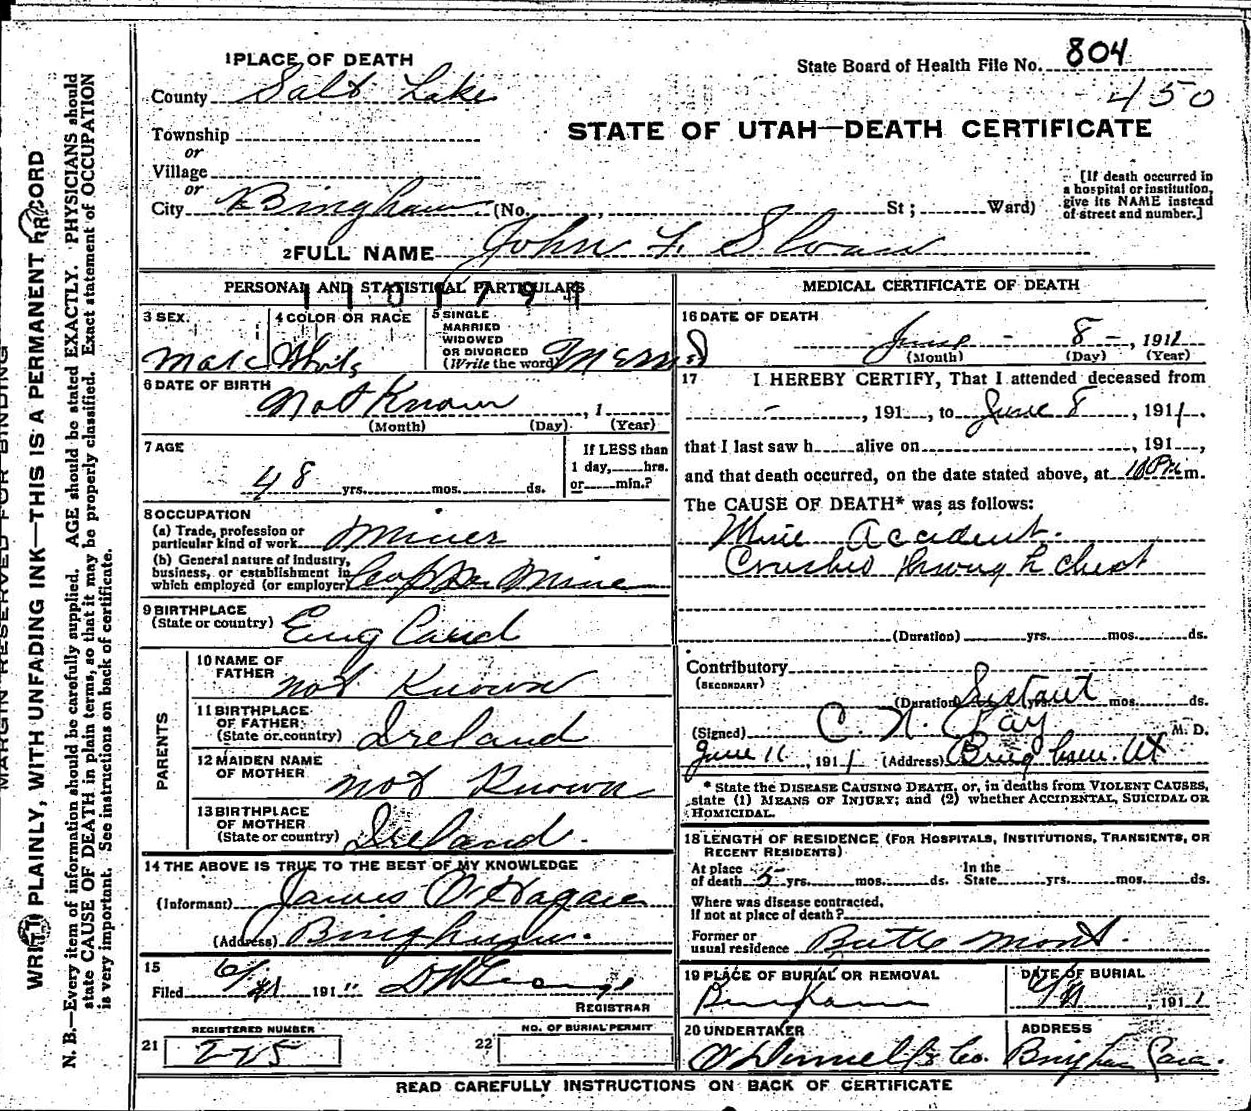 1 PLACE OF DEATH
State Board of Health File No. 804
County Salt Lake
450
Township
STATE OF UTAH—DEATH CERTIFICATE
or
Village
or
City Bingham (No. , St ; Ward)
[If death occurred in a hospital or institution, give its NAME instead of street and number.]
2 FULL NAME John F. Sloan
PERSONAL AND STATISTICAL PARTICULARS
3 SEX Male
4 COLOR OR RACE White
5 SINGLE MARRIED WIDOWED OR DIVORCED (Write the word)
6 DATE OF BIRTH Not Know , 1
(Month) (Day) (Year)
7 AGE
48 yrs. mos. ds.
If LESS than 1 day, hrs. or min.?
8 OCCUPATION
(a) Trade, profession or particular kind of work Miner
(b) General nature of industry, business, or establishment in which employed (or employer) Copper Mine
9 BIRTHPLACE (State or country) England
PARENTS
10 NAME OF FATHER not Known
11 BIRTHPLACE OF FATHER (State or country) Ireland
12 MAIDEN NAME OF MOTHER not Known
13 BIRTHPLACE OF MOTHER (State or country) Ireland.
14 THE ABOVE IS TRUE TO THE BEST OF MY KNOWLEDGE
(Informant) James
(Address) Bingham.
15
Filed 6/11 1911
REGISTRAR
REGISTERED NUMBER
21 225
NO. OF BURIAL PERMIT
22
MEDICAL CERTIFICATE OF DEATH
16 DATE OF DEATH
June - 8 - , 1911
(Month) (Day) (Year)
17 I HEREBY CERTIFY, That I attended deceased from
- , 191 , to June 8 , 1911.
that I last saw h alive on , 191 ,
and that death occurred, on the date stated above, at 10 P m.
The CAUSE OF DEATH* was as follows:
Mine accident.
Crushed through chest
(Duration) yrs. mos. ds.
Contributory
(SECONDARY)
(Duration) Instant yrs. mos. ds.
(Signed) C. N. Ray M. D.
June 11 , 1911 (Address) Bingham. Ut
* State the DISEASE CAUSING DEATH, or, in deaths from VIOLENT CAUSES, state (1) MEANS OF INJURY; and (2) whether ACCIDENTAL, SUICIDAL OR HOMICIDAL.
18 LENGTH OF RESIDENCE (FOR HOSPITALS, INSTITUTIONS, TRANSIENTS, OR RECENT RESIDENTS)
At place of death 5 yrs. mos. ds. In the State yrs. mos. ds.
Where was disease contracted, If not at place of death?
Former or usual residence Butte Mont.
19 PLACE OF BURIAL OR REMOVAL Bingham
DATE OF BURIAL 6/11 , 1911
20 UNDERTAKER O'Donnell & Co.
ADDRESS Bingham
READ CAREFULLY INSTRUCTIONS ON BACK OF CERTIFICATE
MARGIN RESERVED FOR BINDING
WRITE PLAINLY, WITH UNFADING INK—THIS IS A PERMANENT RECORD
N. B.—Every item of information should be carefully supplied. AGE should be stated EXACTLY. PHYSICIANS should
state CAUSE OF DEATH in plain terms, so that it may be properly classified. Exact statement of OCCUPATION
is very important. See instructions on back of certificate.